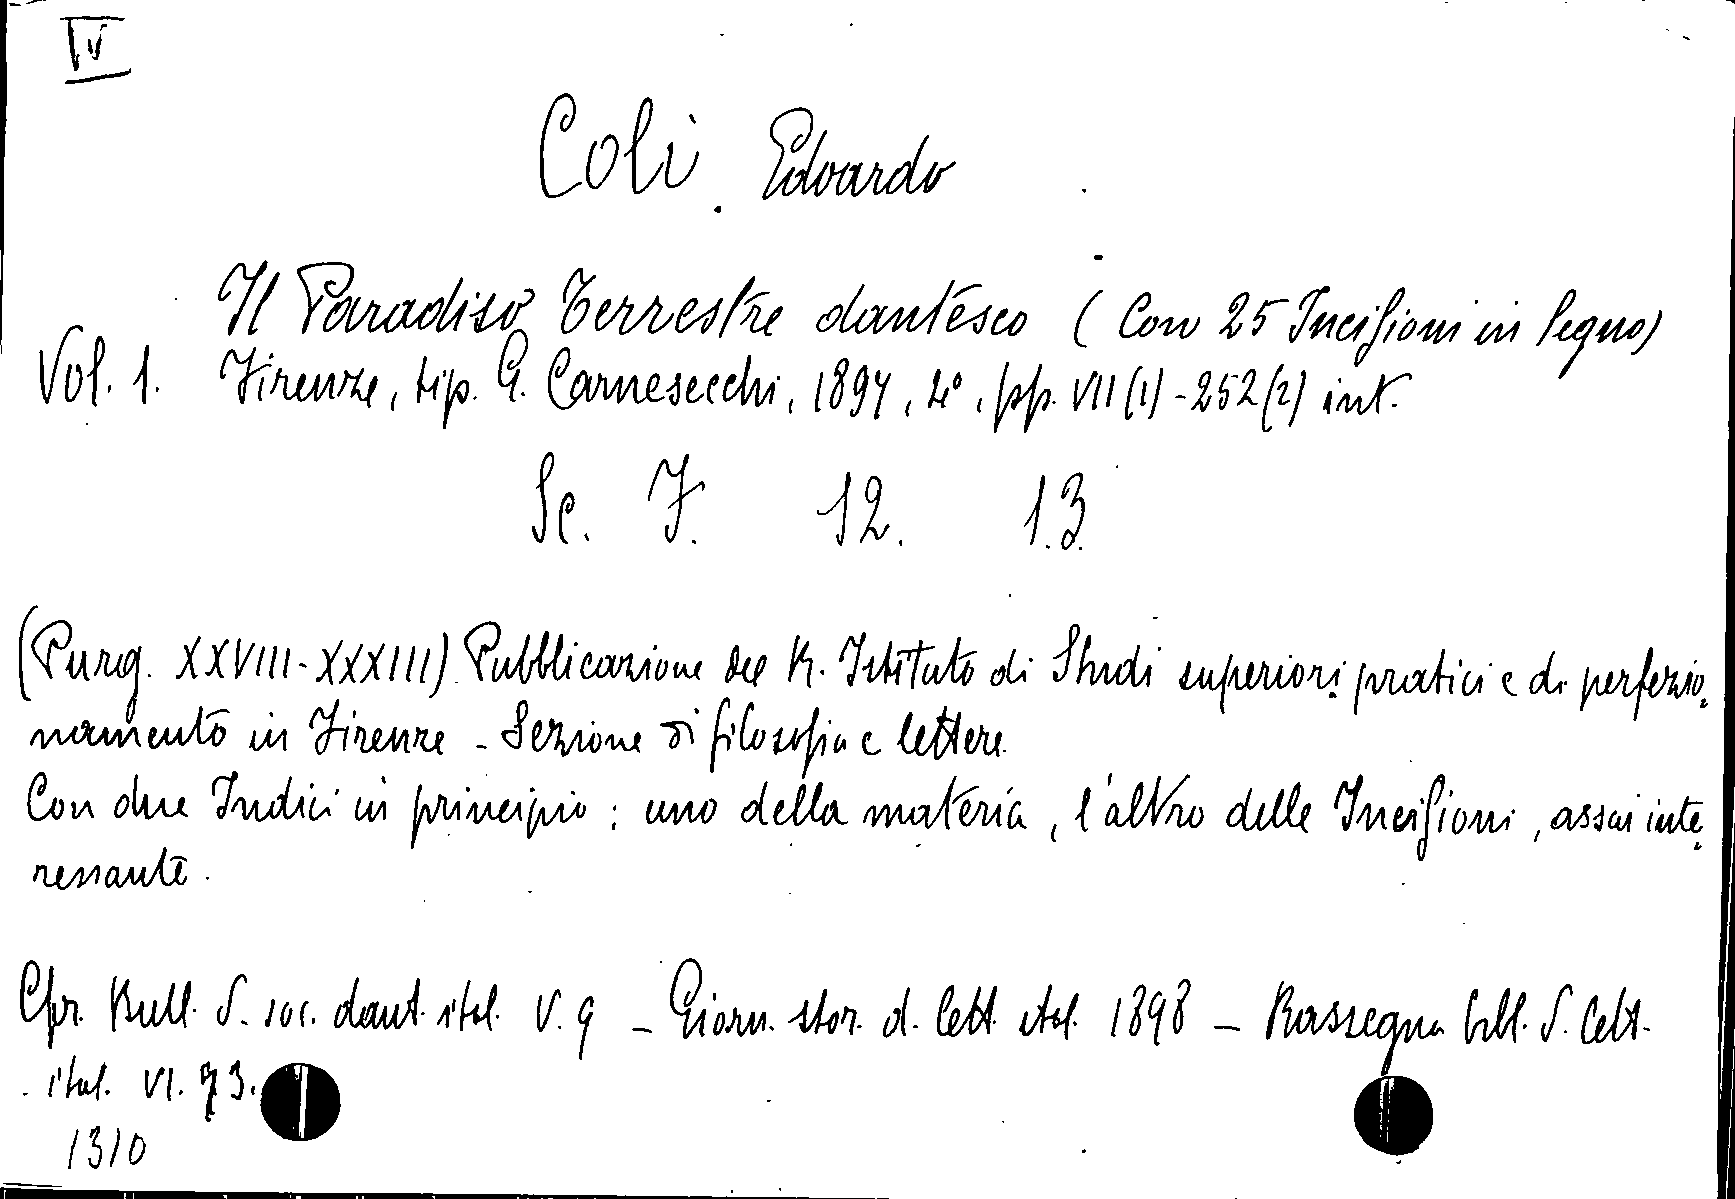 IV
Coli. Edoardo
Il Paradiso Terrestre dantesco (Con 25 Incisioni in legno)
Vol. 1. Firenze, tip. G. Carnesecchi, 1897, 4°, pp. VII (1) - 252 (2) int.
Sc. F. 12. 13.
(Purg. XXVIII-XXXIII) Pubblicazione del R. Istituto di Studi superiori pratici e di perfezio-
namento in Firenze - Sezione di filosofia e lettere
Con due Indici in principio: uno della materia, l'altro delle Incisioni, assai inte-
ressante.
Cfr. Bull. d. soc. dant. ital. V. 9 - Giorn. stor. d. lett. ital. 1898 - Rassegna bibl. d. lett.
ital. VI. 73.
1310